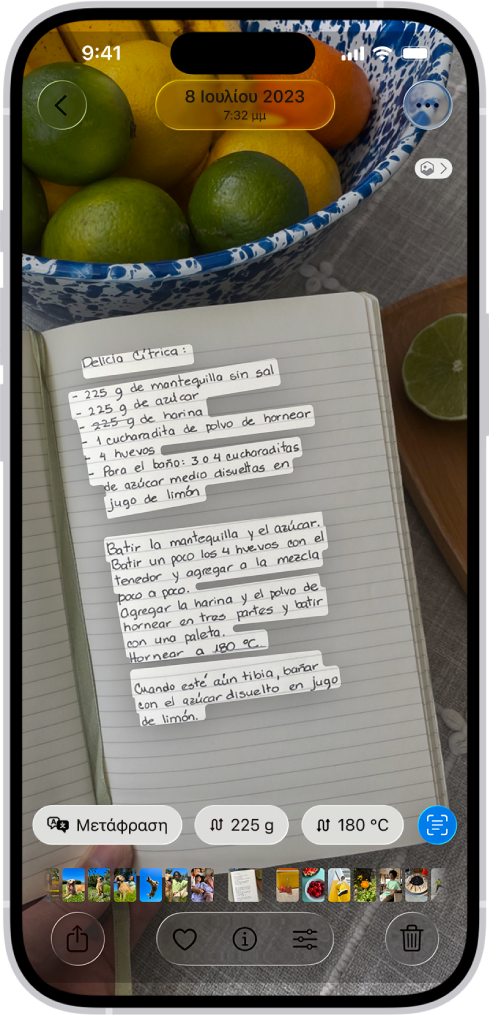 9:41
8 Ιουλίου 2023
7:32 μμ
Delicia Cítrica:
- 225 g de mantequilla sin sal
- 225 g de azúcar
- 225 g de harina
- 1 cucharadita de polvo de hornear
- 4 huevos
- Para el baño: 3 o 4 cucharaditas
de azúcar medio disueltas en
jugo de limón
Batir la mantequilla y el azúcar.
Batir un poco los 4 huevos con el
tenedor y agregar a la mezcla
poco a poco.
Agregar la harina y el polvo de
hornear en tres partes y batir
con una paleta.
Hornear a 180 °C.
Cuando esté aún tibia, bañar
con el azúcar disuelto en jugo
de limón.
Μετάφραση
225 g
180 °C